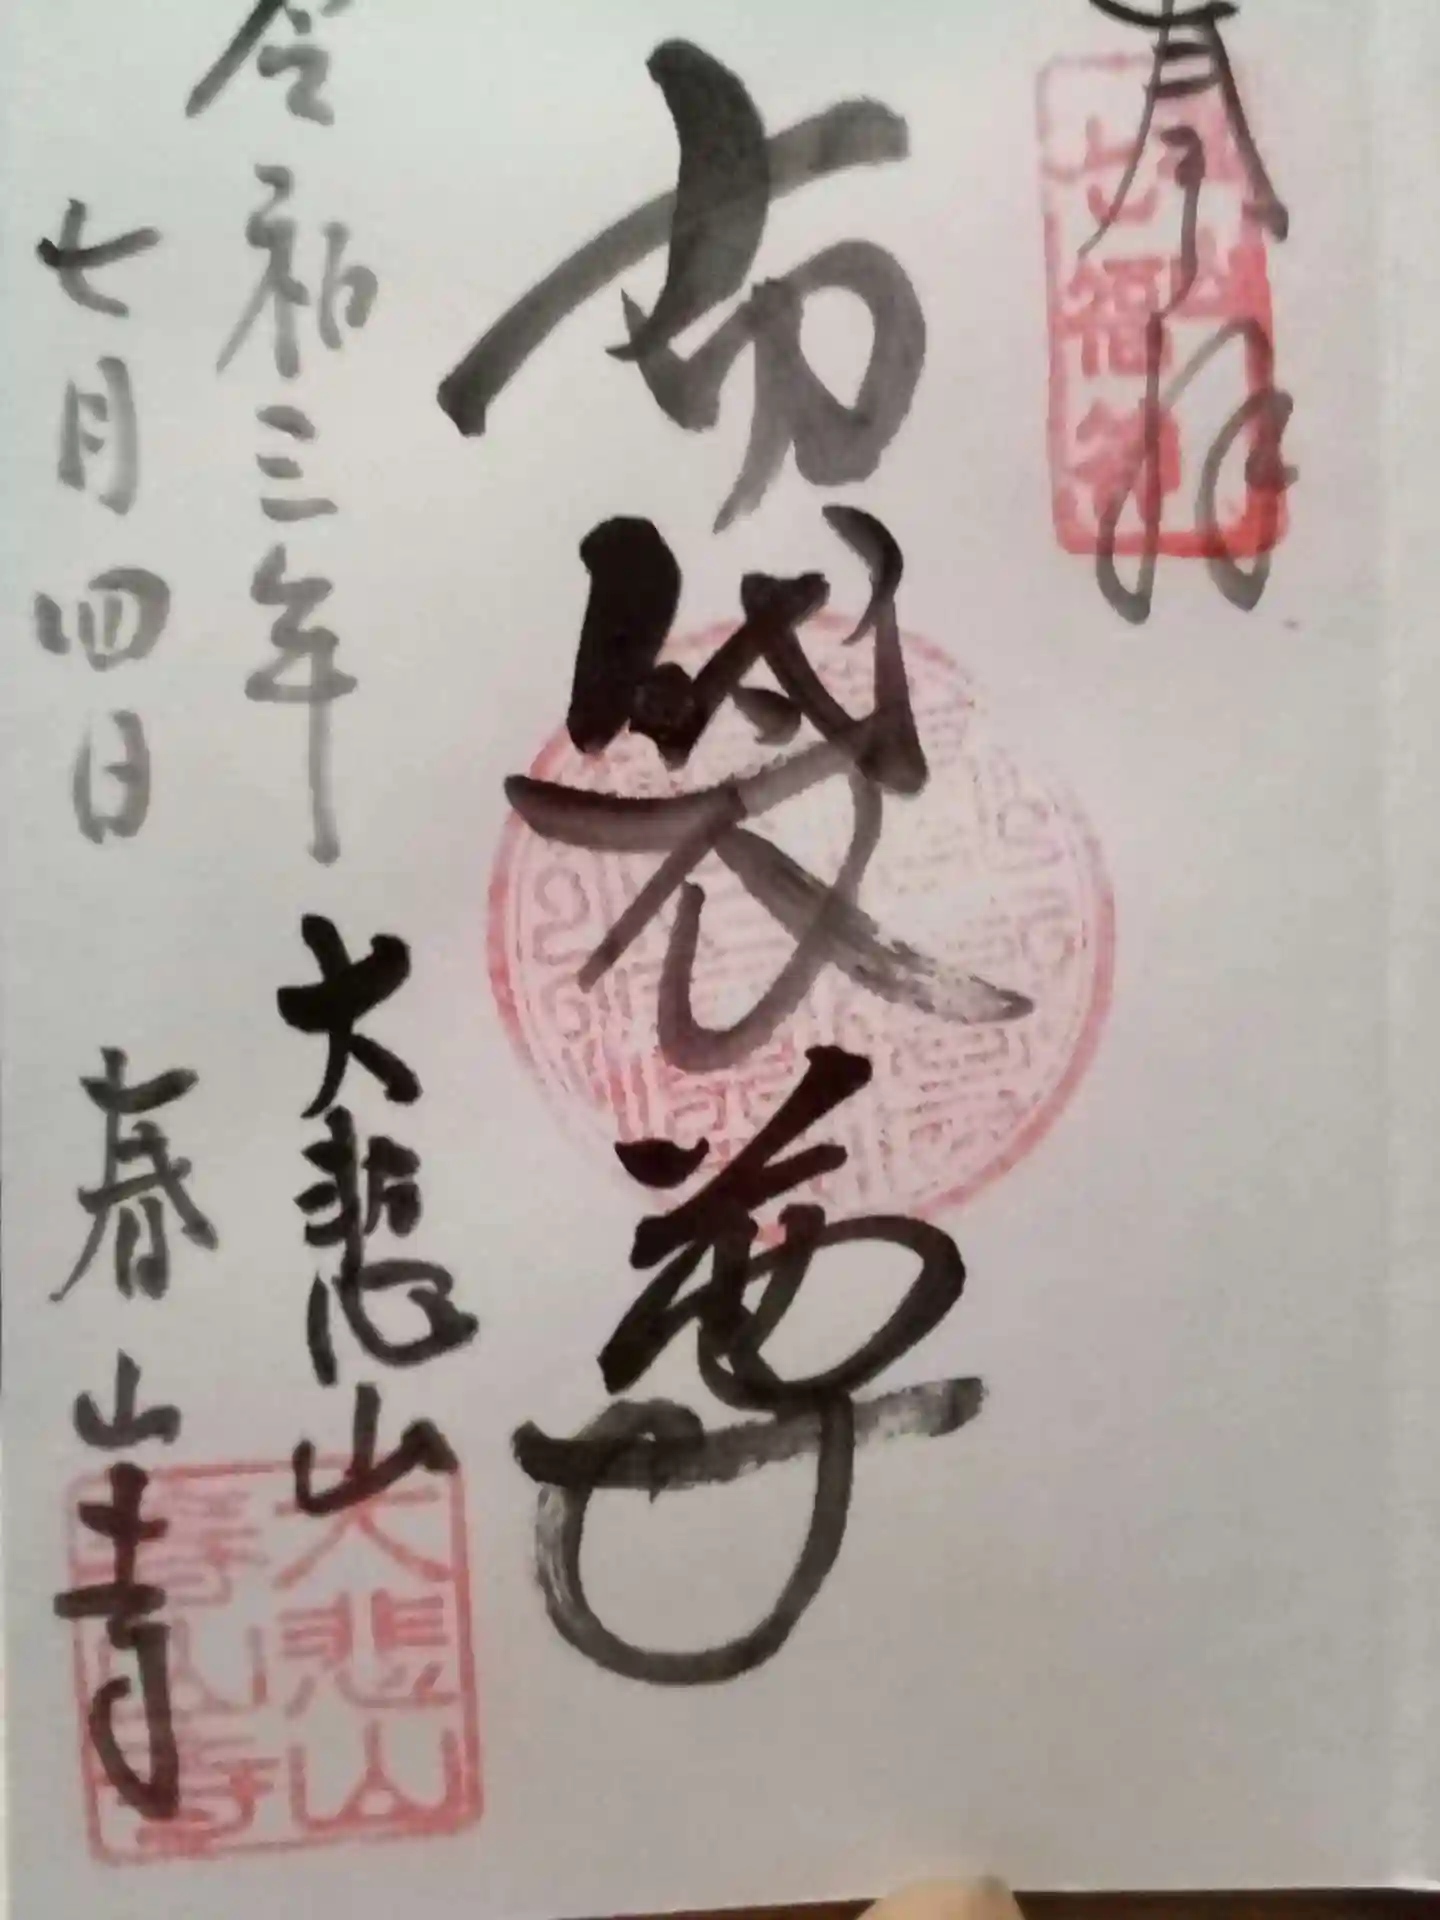 奉拝
布袋尊
令和三年
七月四日
大悲山
春山寺
大悲山
春山寺